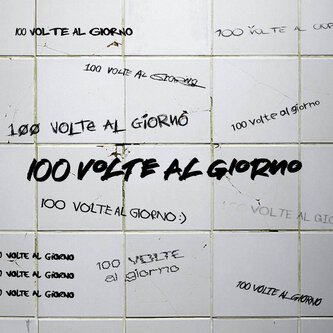 100 VOLTE AL GIORNO
100 VOLTE AL GIORNO
100 VOLTE AL GIORNO
100 VOLTE AL GIORNO
100 volte al giorno
100 VOLTE AL GIORNO
100 VOLTE AL GIORNO:)
100 VOLTE AL GIO
100 VOLTE
al giorno
00 VOLTE AL GIORNO
00 VOLTE AL GIORNO
00 VOLTE AL GIORNO
100 VOLTE AL GIORNO